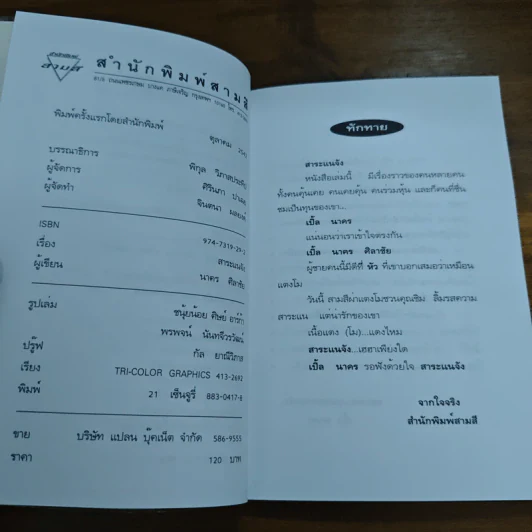 สามสี
สำนักพิมพ์สามสี
พิมพ์ครั้งแรกโดยสำนักพิมพ์
ตุลาคม
บรรณาธิการ
พิกุล
ผู้จัดการ
ศิรินภา
ผู้จัดทำ
จินตนา
ISBN 974-7319-29-2
เรื่อง สาระแนจัง
ผู้เขียน นาคร ศิลาชัย
รูปเล่ม ชนุ้ยน้อย ศิษย์ อาร์ก้า
พรพจน์ นันทจีวรวัฒน์
ปรู๊ฟ กัล ยาณีวิภาส
เรียง TRI-COLOR GRAPHICS 413-2692
พิมพ์ 21 เซ็นจูรี่ 883-0417-8
ขาย บริษัท แปลน บุ๊คเน็ต จำกัด 586-9555
ราคา 120 บาท
ทักทาย
สาระแนจัง
หนังสือเล่มนี้ มีเรื่องราวของคนหลายคน
ทั้งคนคุ้นเคย คนเคยคุ้น คนร่วมหุ้น และก็คนที่ชื่น
ชมเป็นทุนของเขา...
เปิ้ล นาคร
แน่นอนว่าเราเข้าใจตรงกัน
เปิ้ล นาคร ศิลาชัย
ผู้ชายคนนี้มีดีที่ หัว ที่เขาบอกเสมอว่าเหมือน
แตงโม
วันนี้ สามสีผ่าแตงโมชวนคุณชิม ลิ้มรสความ
สาระแน แต่น่ารักของเขา
เนื้อแตง (โม)...แดงไหม
สาระแนจัง...เฮฮาเพียงใด
เปิ้ล นาคร รอฟังด้วยใจ สาระแนจัง
จากใจจริง
สำนักพิมพ์สามสี